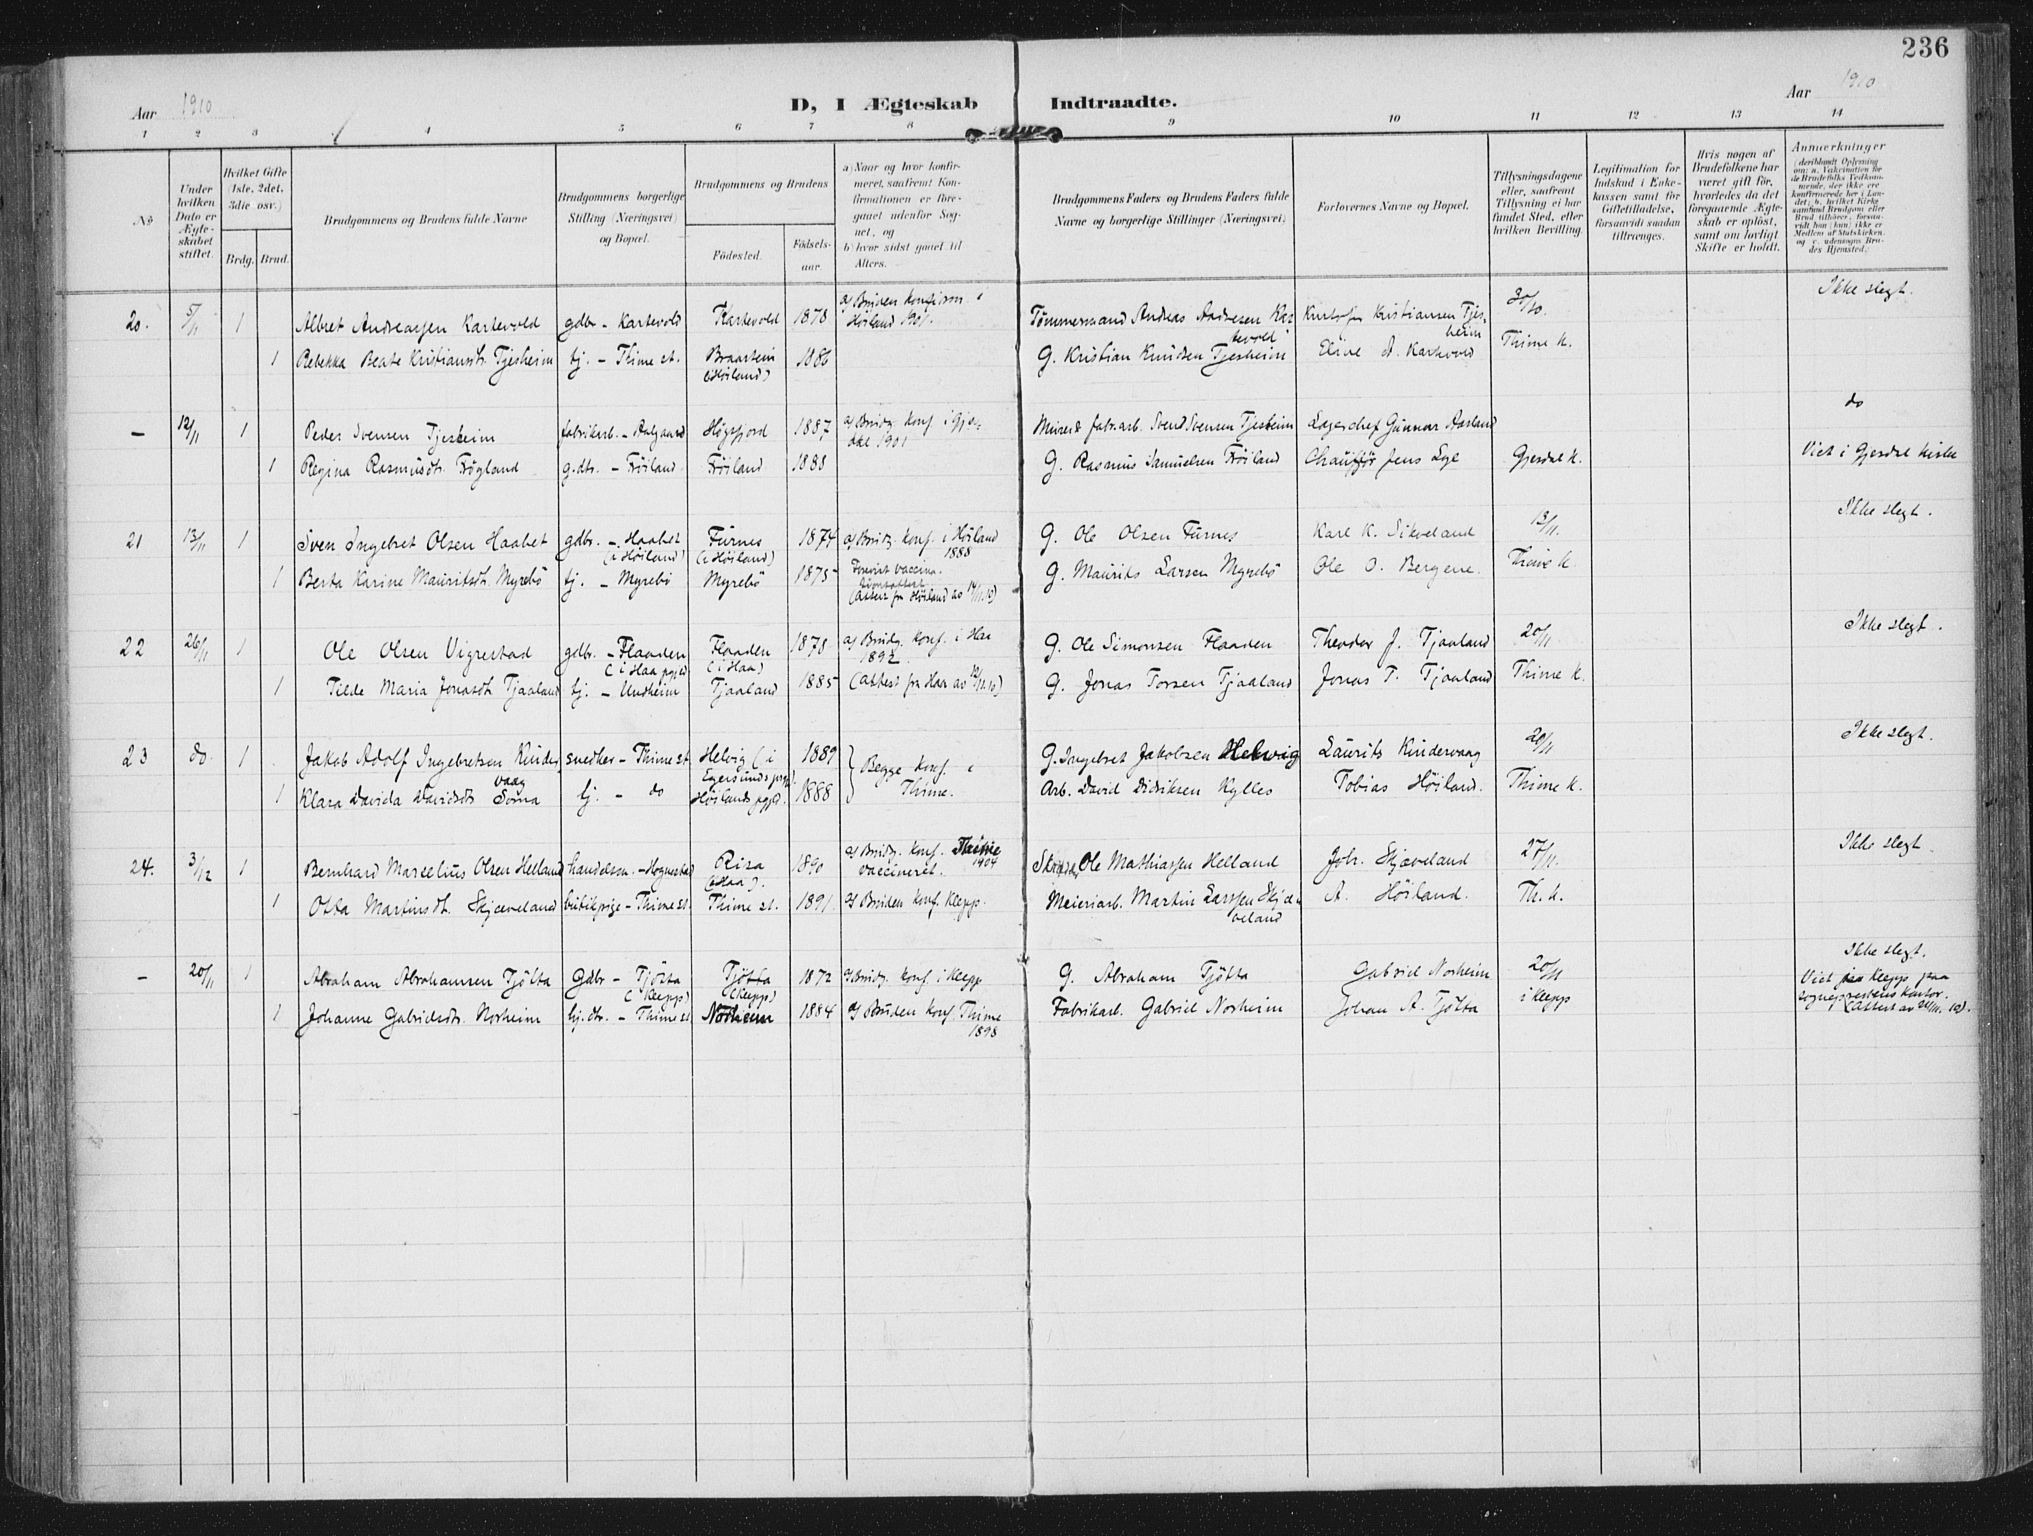 236
Aar 1910
D, I Ægteskab Indtraadte.
Aar 1910
1 2 3 4 5 6 7 8 9 10 11 12 13 14
No
Under hvilken Dato er Ægteskabet stiftet.
Hvilket Gifte (1ste, 2det, 3die osv.)
Brdg. Brud.
Brudgommens og Brudens fulde Navne
Brudgommens borgerlige Stilling (Næringsvei) og Bopæl.
Brudgommens og Brudens
Fødested.
Fødselsaar.
a) Naar og hvor konfirmeret, saafremt Konfirmationen er foregaaet udenfor Sognet, og
b) hvor sidst gaaet til Alters.
Brudgommens Faders og Brudens Faders fulde Navne og borgerlige Stillinger (Næringsvei)
Forlovernes Navne og Bopæl.
Tillysningsdagene eller, saafremt Tillysning ei har fundet Sted, efter hvilken Bevilling.
Legitimation for Indskud i Enkekassen samt for Giftetilladelse, forsaavidt saadan tiltrænges.
Hvis nogen af Brudefolkene har været gift før, hvorledes da det foregaaende Ægteskab er opløst, samt om lovligt Skifte er holdt.
Anmærkninger
(deriblandt Oplysning om: a. Vakcination for de Brudefolks Vedkommende, der ikke ere konfirmerede her i Landet; b. hvilket Kirkesamfund Brudgom eller Brud tilhører, forsaavidt han (hun) ikke er Medlem af Statskirken, og c. udensogns Brudes Hjemsted.
20. 5/11 1 Albret Andreassen Kartevold gdbr - Kartevold Kartevold 1878 a) Bruden konfirm. i Høiland 1901. Tømmermand Andreas Andresen Kartevold Kristofer Kristiansen Tjesheim 30/10. Ikke slegt.
1 Rebekka Beate Kristiansdt. Tjesheim tj. - Thime st. Braastein (Høiland) 1886 G. Kristian Knudsen Tjesheim A. Kartevold Thime k.
- 12/11 1 Peder Svensen Tjesheim fabrikarb. - Aalgaard Høgsfjord 1887 a) Brudg. konf. i Gjesdal 1901 fabr.arb. Svend Svensen Tjesheim Lagerchef Gunnar Aasland do
1 Regina Rasmusdt. Frøyland g.dtr. - Frøiland Frøiland 1888 G. Rasmus Samuelsen Frøiland Chauffør Jens Lye Gjesdal k. Viet i Gjesdal kirke
21 13/11 1 Sven Ingebret Olsen Haabet gdbr. - Haabet (i Høiland) Furnes (i Høiland) 1874 a) Brudg. konf. i Høiland 1888 G. Ole Olsen Furnes Karl K. Sikveland 13/11. Ikke slegt.
1 Berta Karine Mauritsdt. Myrebø tj. - Myrebø Myrebø 1875 Forevist vaccina. (Attest fra Høiland av 14/11.10) G. Maurits Larsen Myrebø Ole O. Bergene. Thime k.
22 26/11 1 Ole Olsen Vigrestad gdbr. - Flaaden (i Haa pgjd) Flaaden (i Haa) 1878 a) Brudg. konf. i Haa 1892 G. Ole Simonsen Flaaden Theodor J. Tjaaland 20/11 Ikke slegt.
1 Tilde Maria Jonasdt. Tjaaland tj. - Undheim Tjaaland 1885 (attest fra Haa av 12/11.10) G. Jonas Torsen Tjaaland Jonas T. Tjaaland Thime k.
23 do. 1 Jakob Adolf Ingebretsen Kindervaag snedker - Thime st. Helvig (i Egersunds pgjd). 1889 } Begge konf. i Thime. G. Ingebret Jakobsen Helvig Laurits Kindervaag 20/11 Ikke slegt.
1 Klara Davida Davidsdt. Soma tj. - do Høilands pgjd. 1888 Arb. David Didriksen Kylles Tobias Høiland. Thime k.
24. 3/12 1 Bernhard Marselius Olsen Helland handelsm. - Hognestad Risa (Haa). 1890 a) Brudg. konf. Thime 1904 vaccineret. Ole Mathiassen Helland Joh. Skjæveland 27/11. Ikke slegt.
1 Otta Martinsdt. Skjæveland butikpige - Thime st. Thime st. 1891. a) Bruden konf. Klepp. Meieriarb. Martin Larssen Skjæveland A. Høiland. Th. k.
- 20/11 1 Abraham Abrahamsen Tjøtta Gdbr - Tjøtta (Klepp) Tjøtta (Klepp) 1872 a) Brudg. konf. i Klepp G. Abraham Tjøtta Gabriel Norheim 20/11 Ikke slegt. Viet Klepp paa
1 Johanne Gabrielsdtr. Norheim hj.dtr. - Thime st. Norheim 1884 a) Bruden konf. Thime 1898 Fabrikarb. Gabriel Norheim Johan A. Tjøtta i Klepp sogneprestens kontor. (Attest av 20/11. 10).